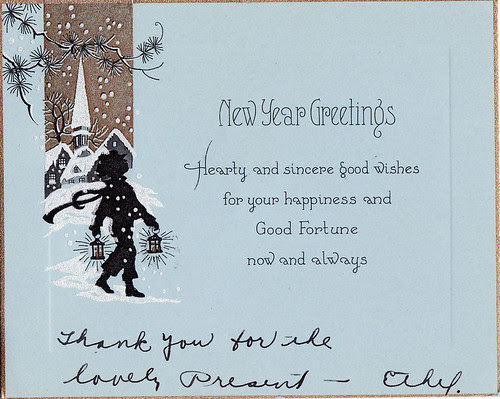 New Year Greetings
Hearty and sincere good wishes
for your happiness and
Good Fortune
now and always
Thank you for the
lovely Present — Ethel.